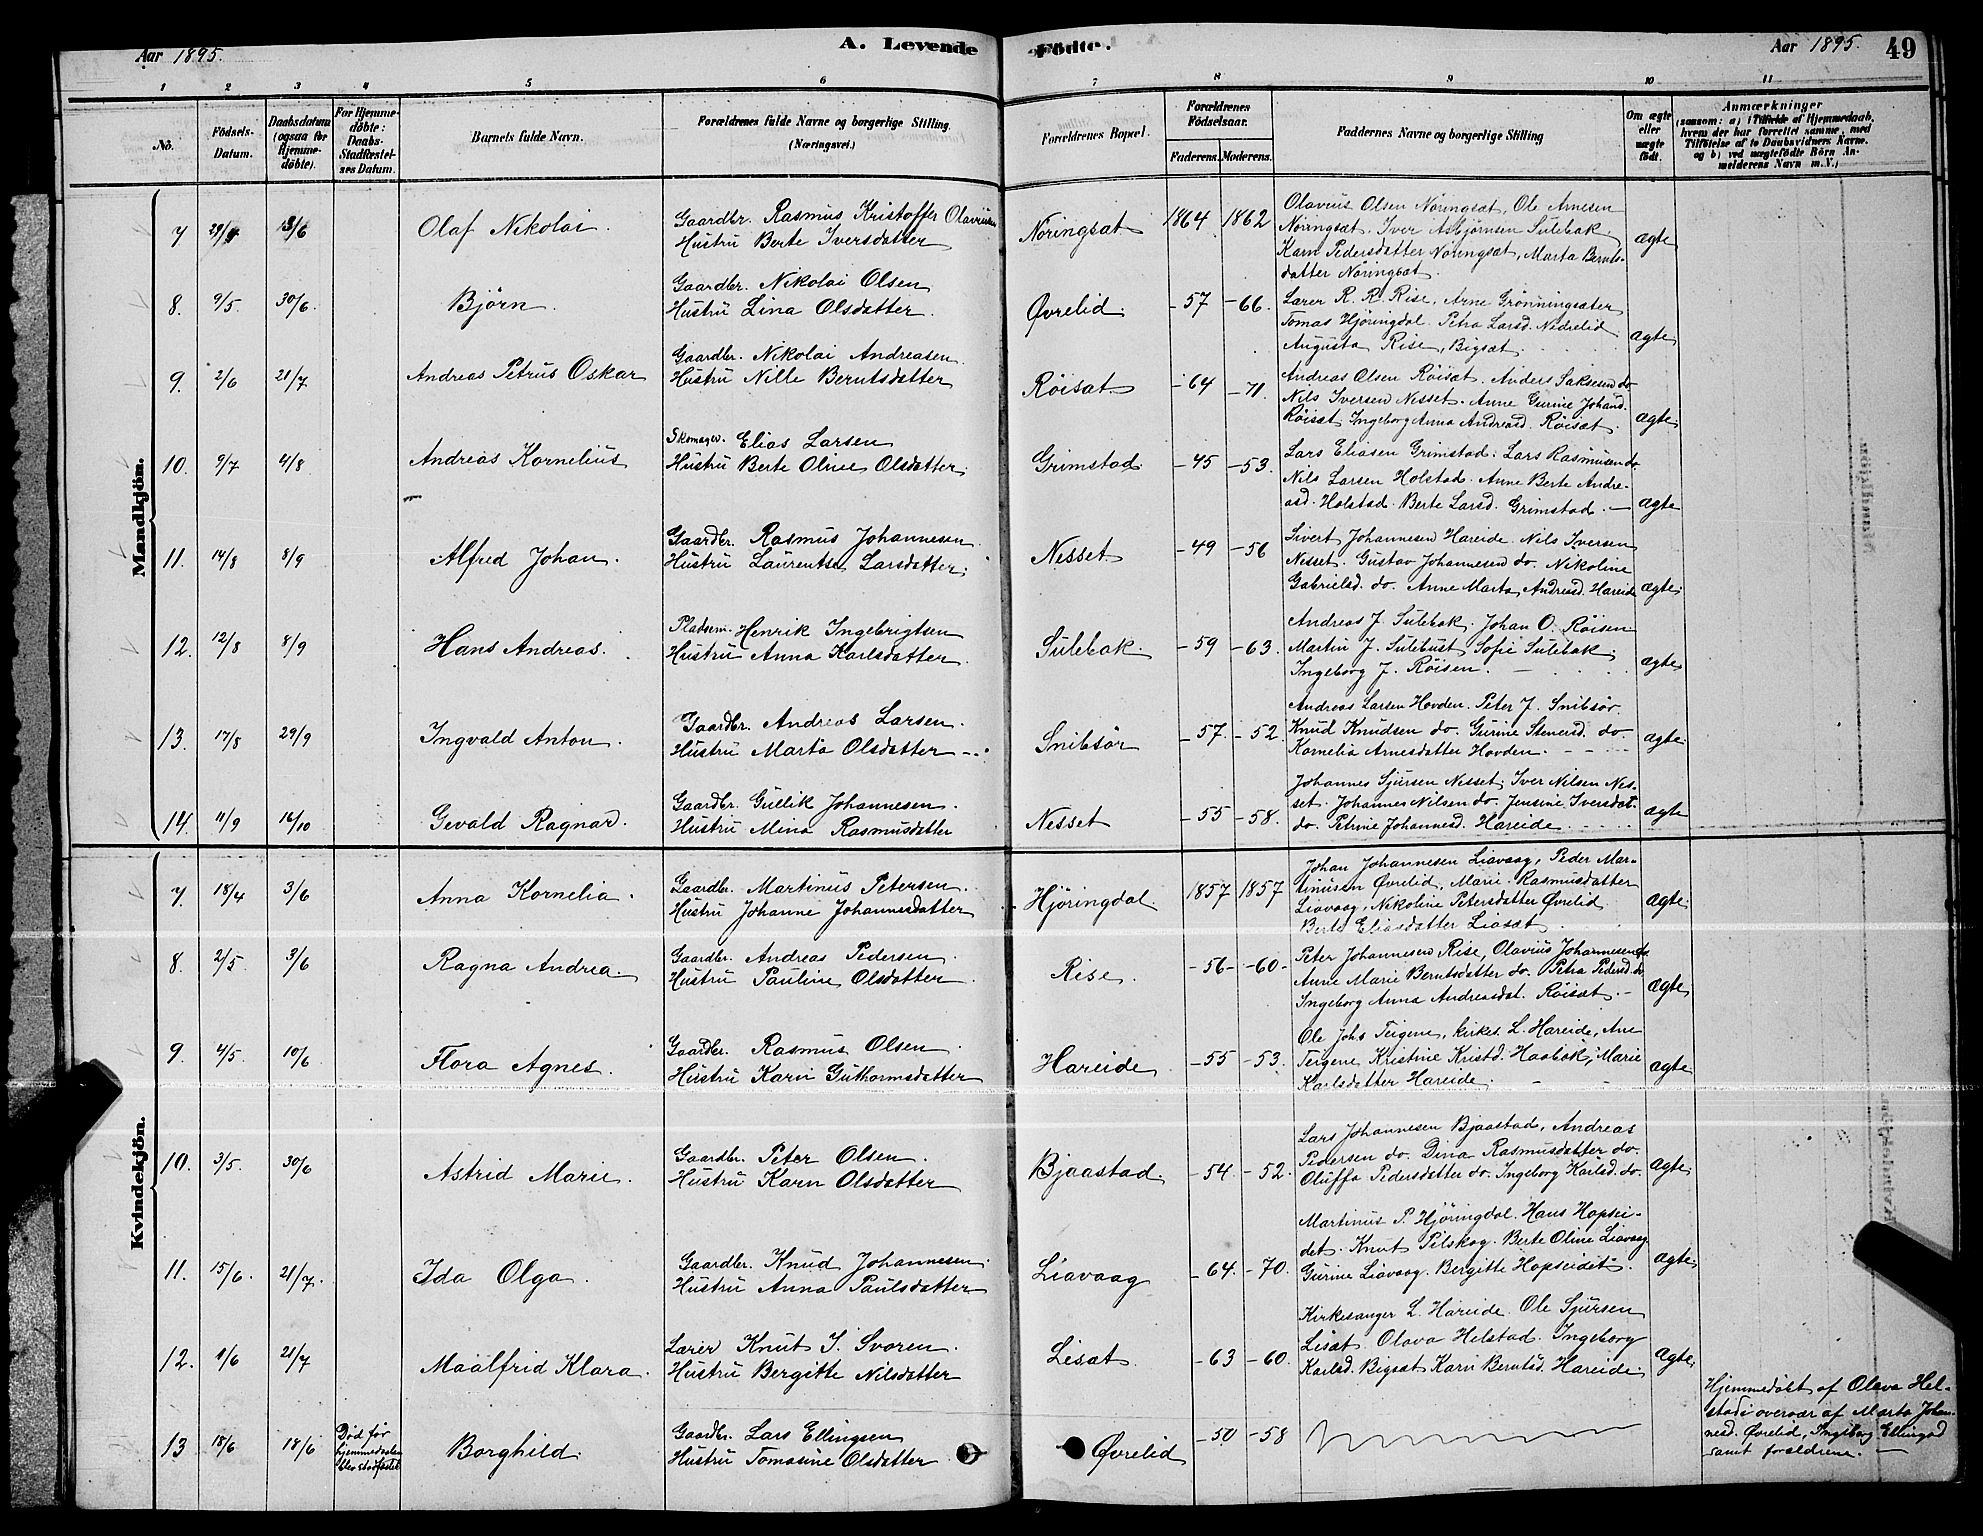 Aar 1895.
A. Levende Födte.
Aar 1895.
49
1 2 3 4 5 6 7 8 9 10 11
No.
Födsels-Datum.
Daabsdatum (ogsaa for Hjemme-döbte).
For Hjemme-döbte: Daabs-Stadfæstel-ses Datum.
Barnets fulde Navn.
Forældrenes fulde Navne og borgerlige Stilling.
(Næringsvei.)
Forældrenes Bopæl.
Forældrenes Födselsaar.
Faderens. Moderens.
Faddernes Navne og borgerlige Stilling
Om ægte eller uægte födt.
Anmærkninger
(saasom: a) i Tilfælde af Hjemmedaab,
hvem der har forrettet samme, med
Tilföielse af to Daabsvidners Navne.
og b) ved uægtefödte Börn An-
melderens Navn m. V.)
Mandkjön.
7 29/4 3/6 Olaf Nikolai. Gaardbr. Rasmus Kristoffer Olavüssen
Hustru Berte Iversdatter Nöringsæt 1864 1862
Olavius Olsen Nöringsæt, Ole Arnesen
Nöringsæt. Iver Asbjørnsen Sulebak.
Karn Pedersdatter Nöringsæt, Marta Bernts-
datter Nöringsæt. ægte
8. 9/5 30/6 Björn. Gaardbr. Nikolai Olsen
Hustru Lina Olsdatter. Øvrelid. -57 -66.
Lærer R. R. Rise, Arne Grönningsæter
Tomas Hjöringdal. Petra Larsd. Nedrelid
Augusta Rise, Bigsæt. ægte
9. 2/6 21/7 Andreas Petrus Oskar Gaardbr. Nikolai Andreasen.
Hustru Nille Berntsdatter Röisæt -64 -71.
Andreas Olsen Röisæt. Anders Saksesen do
Nils Iversen Nesset. Anne Gurine Johand.
Röisæt. Ingeborg Anna Andreasd. Röisæt. ægte
10. 9/7 4/8 Andreas Kornelius Skomager. Elias Larsen
Hustru Berte Oline Olsdatter. Grimstad -45 -53.
Lars Eliasen Grimstad. Lars Rasmusen do
Nils Larsen Holstad. Anne Berte Andre-
asd. Holstad. Berte Larsd. Grimstad. — ægte
11. 14/8 8/9 Alfred Johan. Gaardbr. Rasmus Johannesen
Hustru Laurentse Larsdatter. Nesset -49 -56
Sivert Johannesen Hareide. Nils Iversen
Nesset. Gustav Johannesen do. Nikoline
Gabrielsd. do. Anne Marta Andreasd. Hareide ægte
12. 12/8 8/9 Hans Andreas. Pladsem. Henrik Ingebrigtsen
Hustru Anna Karlsdatter. Sulebak. -59 -63.
Andreas J. Sulebak. Johan O. Röisen
Martin J. Sulebust Sofie Sulebak.
Ingeborg J. Röisen. — ægte
13. 17/8 29/9 Ingvald Anton. Gaardbr. Andreas Larsen.
Hustru Marta Olsdatter Snibsör -57. -52
Andreas Larsen Hovden. Peter J. Snibsör.
Knud Knudsen do. Gurine Stensd. do
Kornelia Arnesdatter Hovden. ægte.
14. 11/9 16/10 Gevald Ragnar. Gaardbr. Gullik Johannesen.
Hustru Mina Rasmusdatter Nesset -55 -58.
Johannes Sjursen Nesset. Iver Nilsen Nes-
set. Johannes Nilsen do. Jensine Iversdat.
do. Petrine Johannesd. Hareide. ægte
Kvindekjön.
7. 18/4 3/6 Anna Kornelia. Gaardbr. Martinus Petersen.
Hustru Johanne Johannesdatter Hjöringdal. 1857 1857
Johan Johannesen Liavaag, Peder Mar-
tinusen Øvrelid, Marie Rasmusdatter
Liavaag, Nikoline Petersdatter Øvrelid
Berte Eliasdatter Liasæt. ægte.
8. 2/5 3/6 Ragna Andrea. Gaardbr. Andreas Pedersen.
Hustru Pauline Olsdatter Rise. -56- -60-
Peter Johannesen Rise, Olavius Johannesen do
Anne Marie Berntsdatter do. Petra Pedersd. do
Ingeborg Anna Andreasdat. Röisæt. — ægte
9. 4/5 10/6 Flora Agnes. Gaardbr. Rasmus Olsen.
Hustru Karn Guthormsdatter Hareide -55 -53.
Ole Johs Teigene, kirkes. L. Hareide, Ane
Teigene Kristine Kristd. Haabak, Marie
Karlsdatter Hareide. — ægte
10. 3/5. 30/6 Astrid Marie. Gaardbr. Peter Olsen.
Hustru Karn Olsdatter Bjaastad. -54. -52.
Lars Johannesen Bjaastad, Andreas
Pedersen do. Dina Rasmusdatter do.
Oluffa Pedersdatter do. Ingeborg Karlsd. do. ægte.
11. 15/6. 21/7. Ida Olga. Gaardbr. Knud Johannesen.
Hustru Anna Paulsdatter Liavaag -64. -70.
Martinus P. Hjöringdal. Hans Hopsei-
det. Knut Pilskog. Berte Oline Liavaag
Gurine Liavaag. Bergitte Hopseidet. ægte.
12. 1/6 21/7 Maalfrid Klara. Lærer Knut I. Svoren.
Hustru Bergitte Nilsdatter Lisæt. -63 -60.
Kirkesanger L. Hareide. Ole Sjursen
Lisæt Olava Helstad. Ingeborg
Karlsd. Bigsæt Karn Berntsd. Hareide. ægte.
13 18/6 18/6 Död før hjemmedaaben blev stadfæstet
Borghild. Gaardbr. Lars Ellingsen
Hustru Tomasine Olsdatter Øvrelid -50 -58
Hjemmedöbt af Olava Hel-
stad i overvær af Marta Johan-
nesd. Øvrelid, Ingeborg Ellingsd
samt forældrene. —